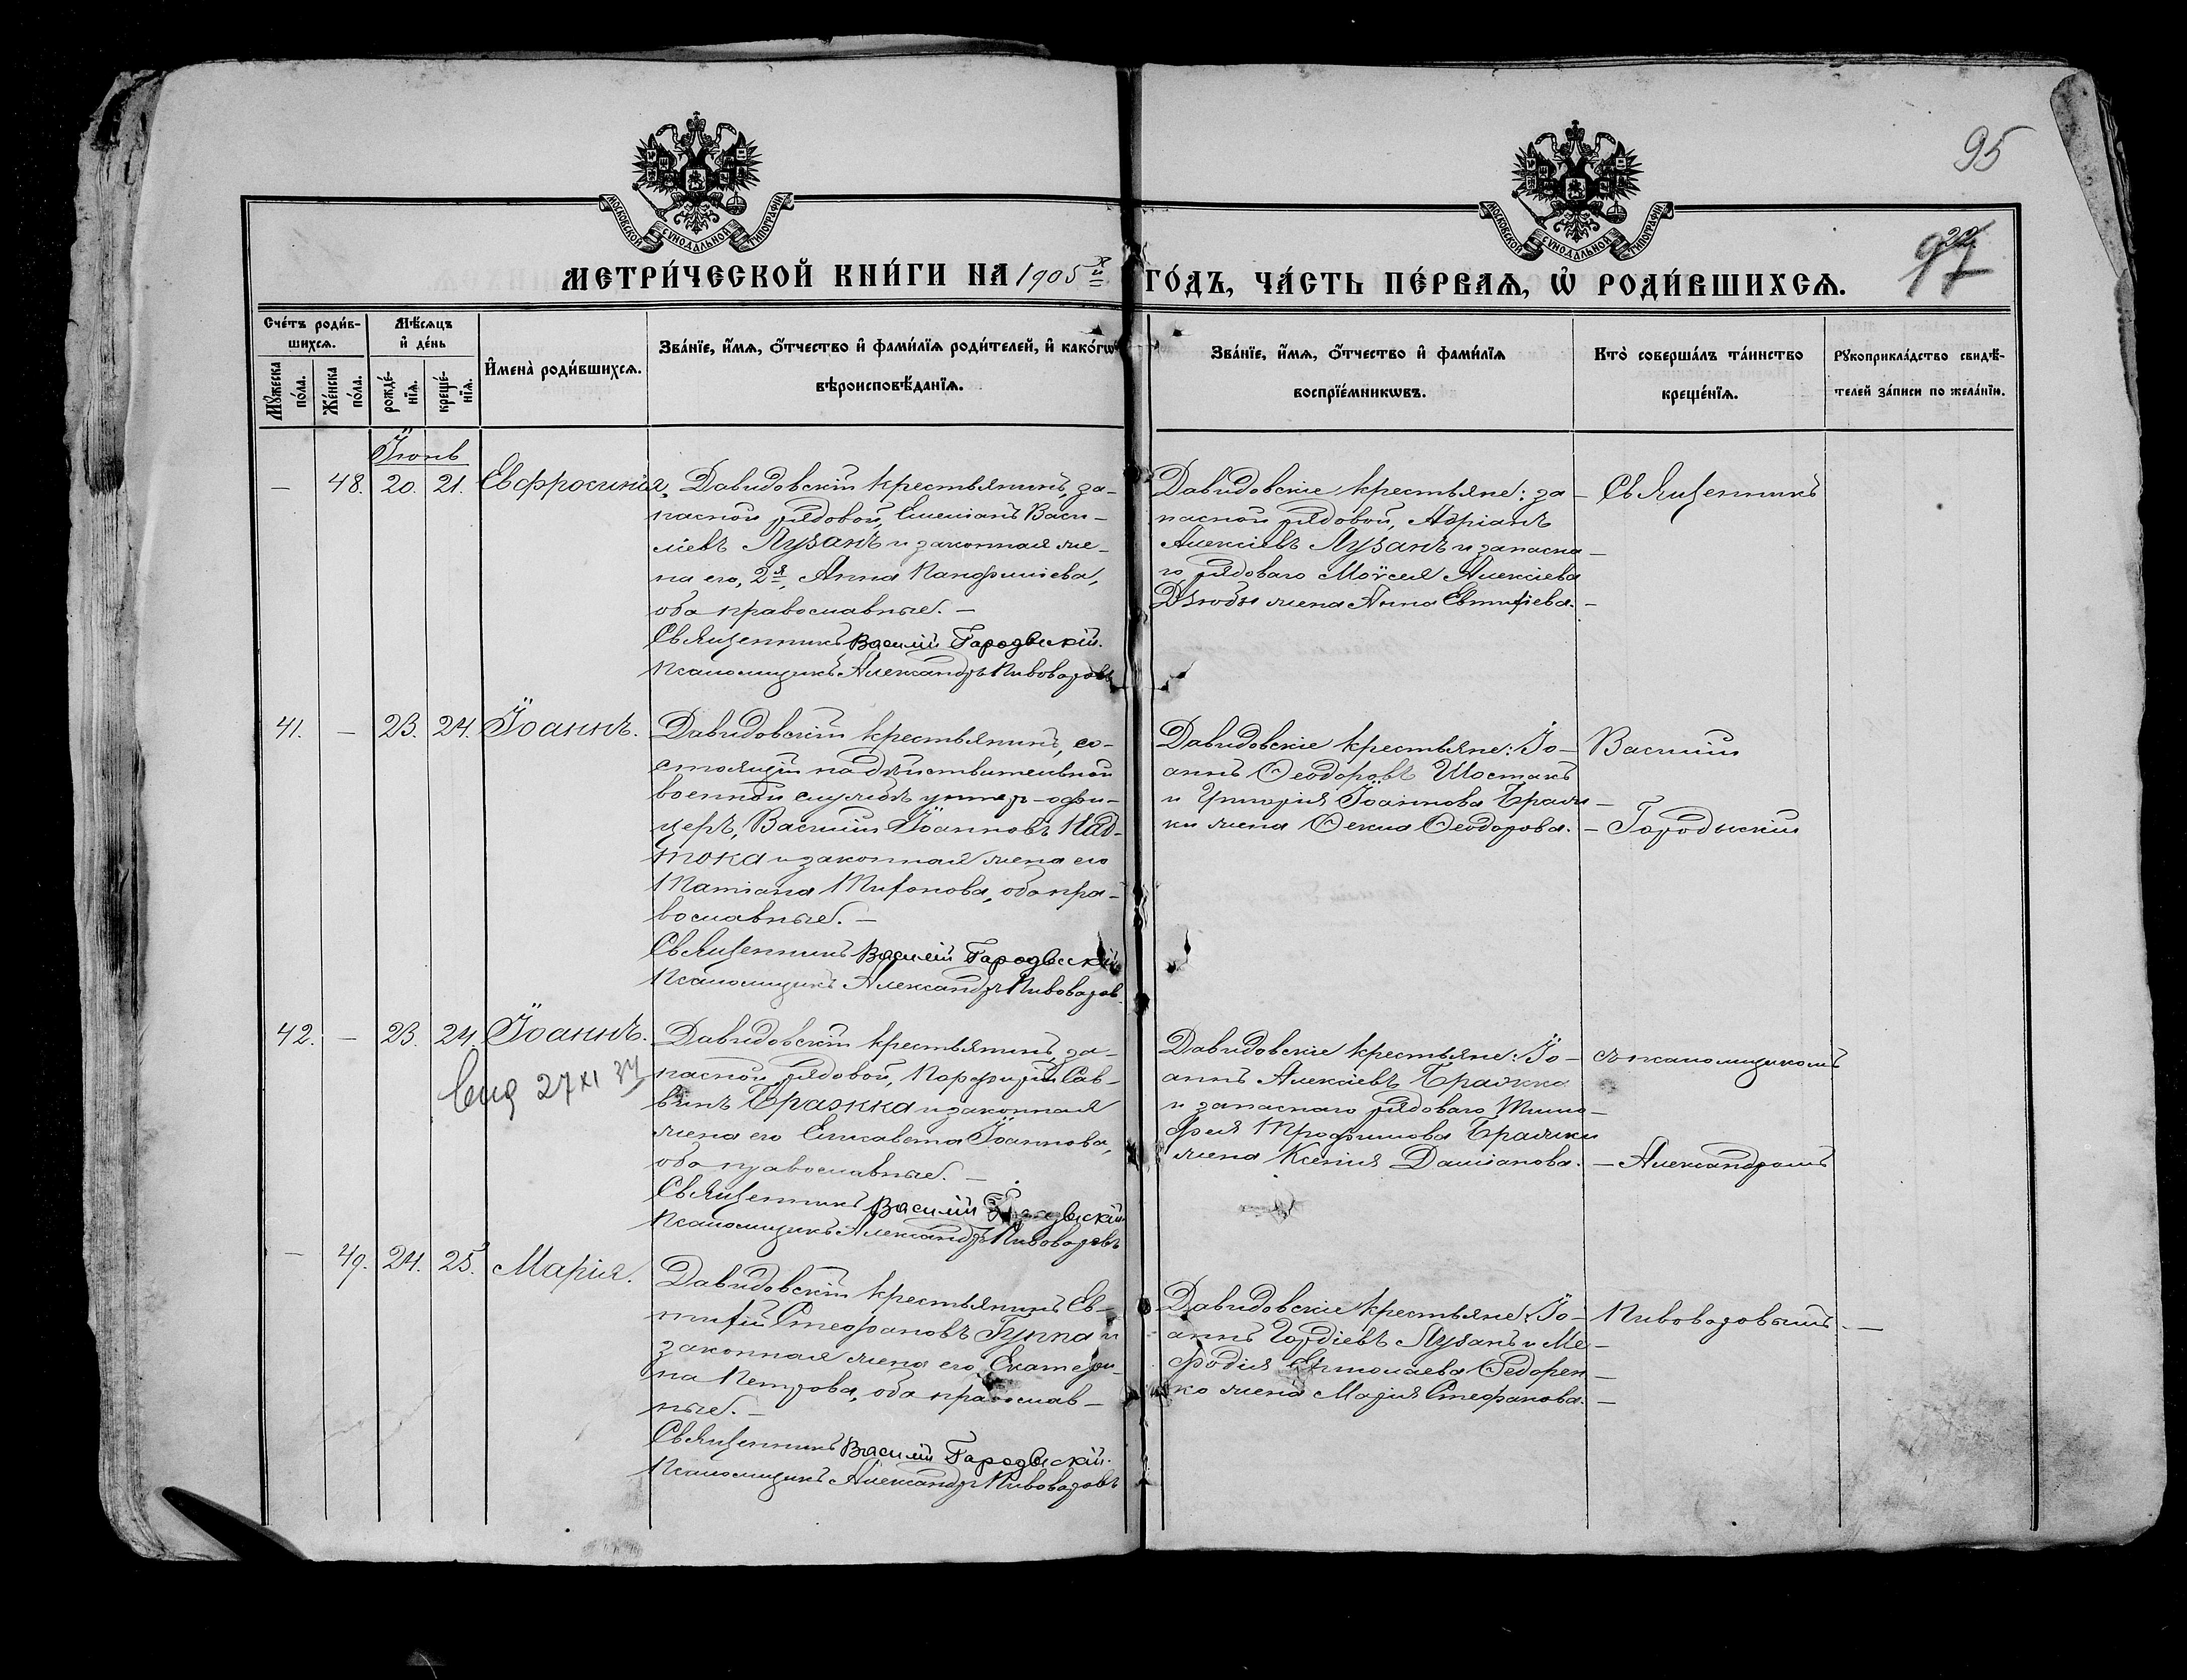 95
97
22
МЕТРИ́ЧЕСКОЙ КНИ́ГИ НА 1905й ГО́ДЪ, ЧА́СТЬ ПЕ́РВАѦ, Ѡ҆ РОДИ́ВШИХСѦ.
Сче́тъ роди́в-
шихсѧ.
Мꙋ́жеска по́ла.
Же́нска по́ла.
Мѣ́сѧцъ
и҆ де́нь
рожде́-
нїѧ.
креще́-
нїѧ.
И҆мена̀ роди́вшихсѧ.
Зва́нїе, и҆́мѧ, ѻ҆́тчество и҆ фами́лїѧ роди́телей, и҆ како́гѡ
вѣроисповѣ́данїѧ.
Зва́нїе, и҆́мѧ, ѻ҆́тчество и҆ фами́лїѧ
воспрїе́мникѡвъ.
Кто̀ соверша́лъ та́инство
креще́нїѧ.
Рꙋкоприкла́дство свидѣ́-
телей за́писи по жела́нїю.
Іюнь
— 48. 20. 21. Евфросинія.
Давидовскій крестьянинъ, за-
пасной рядовой, Емеліанъ Васи-
ліевъ Лузанъ и законная же-
на его, 2я, Анна Панфиліева,
оба православные. —
Священникъ Василій Городыскій.
Псаломщикъ Александръ Пивоваровъ
Давидовскіе крестьяне: за-
пасной рядовой, Адріанъ
Алексіевъ Лузанъ и запасна-
го рядоваго Моѵсея Алексіева
Дзюбы жена Анна Евтихіева. —
— Священникъ
41. — 23. 24. Іоаннъ.
Давидовскій крестьянинъ, со-
стоящій на дѣйствительной
военной службѣ унтеръ-офи-
церъ, Василій Іоанновъ Над-
тока и законная жена его
Татіана Тихонова, оба пра-
вославные. —
Священникъ Василій Городыскій
Псаломщикъ Александръ Пивоваров
Давидовскіе крестьяне: Іо-
аннъ Ѳеодоровъ Шостакъ
и Григорія Іоаннова Браж-
ки жена Ѳекла Ѳеодорова. —
Василій
— Городыскій
42. — 23. 24. Іоаннъ.
27 XI 34
Давидовскій крестьянинъ, за-
пасной рядовой, Порфирій Сав-
винъ Бражка и законная
жена его Елисавета Іоаннова,
оба православные. —
Священникъ Василій Городыскій
Псаломщикъ Александръ Пивоваровъ
Давидовскіе крестьяне: Іо-
аннъ Алексіевъ Бражка
и запаснаго рядоваго Тимо-
фея Трофимова Бражки
жена Ксенія Даміанова.
съ псаломщикомъ
— Александромъ
— 49. 24. 25. Марія.
Давидовскій крестьянинъ Ев-
тихій Стефановъ Гуппа и
законная жена его Екатери-
на Петрова, оба православ-
ные. —
Священникъ Василій Городыскій.
Псаломщикъ Александръ Пивоваровъ
Давидовскіе крестьяне: Іо-
аннъ Гордіевъ Лузанъ и Ме-
фодія Ермолаева Ѳедорен-
ко жена Марія Стефанова. —
Пивоваровымъ. —